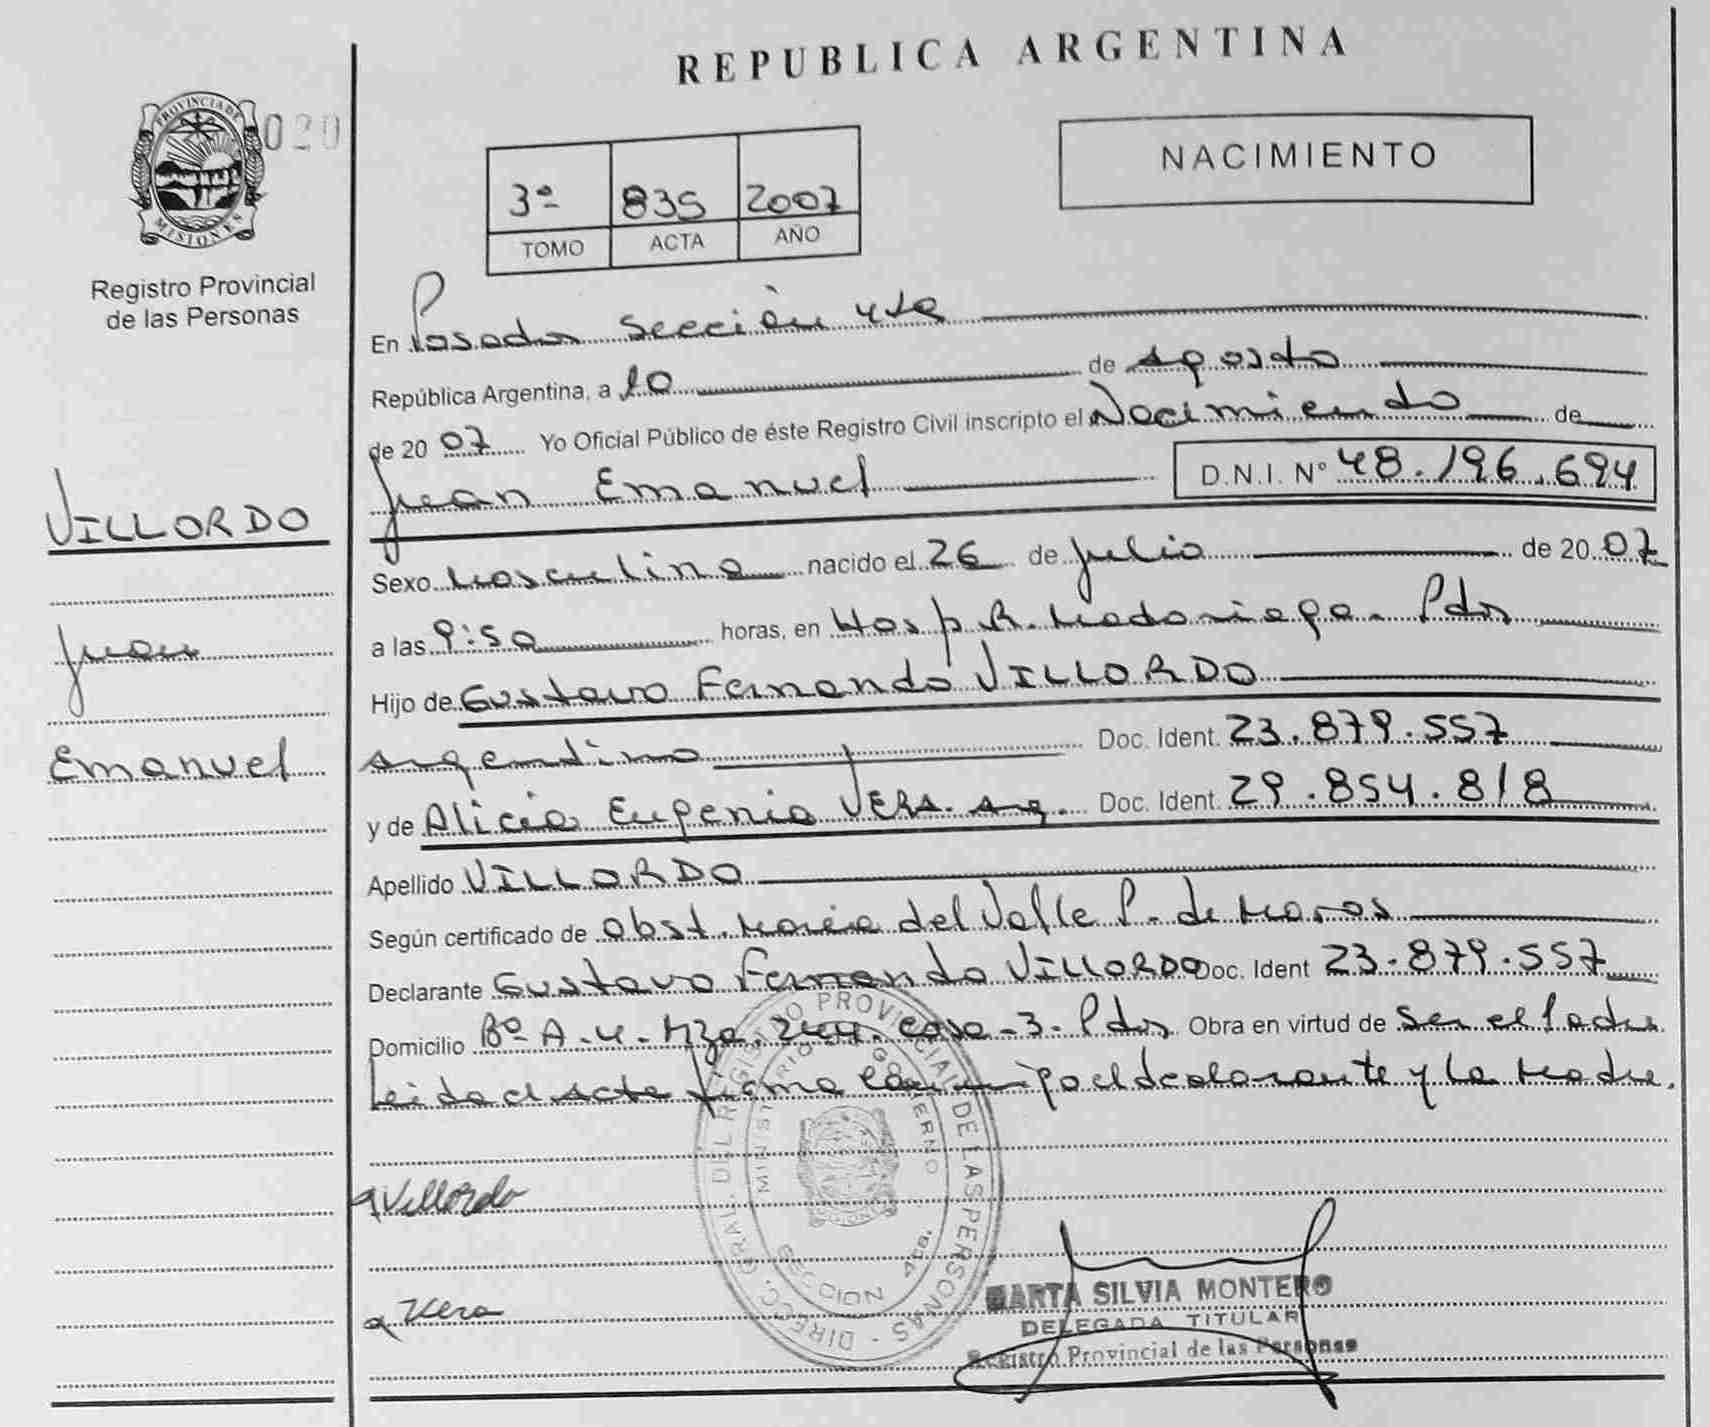 REPUBLICA ARGENTINA
PROVINCIA DE MISIONES
020
Registro Provincial
de las Personas
3ª 835 2007
TOMO ACTA AÑO
NACIMIENTO
En Posadas Sección 4ta
República Argentina, a 10 de Agosto
de 2007 Yo Oficial Público de éste Registro Civil inscripto el Nacimiento de
Juan Emanuel D.N.I. Nº 48.196.694
VILLORDO
Juan
Emanuel
Sexo Masculino nacido el 26 de Julio de 2007
a las 9:50 horas, en Hosp R. Madariaga. Pdas
Hijo de Gustavo Fernando VILLORDO
Argentino Doc. Ident. 23.879.557
y de Alicia Eugenia VERA. Arg. Doc. Ident. 29.854.818
Apellido VILLORDO
Según certificado de Obst. María del Valle P. de
Declarante Gustavo Fernando VILLORDO Doc. Ident 23.879.557
Domicilio Bº A-4- Mza. 244. casa-3- Pdas Obra en virtud de ser el Padre
Leida el acta firma conmigo el declarante y la Madre.
DIRECC. GRAL. DEL REGISTRO PROVINCIAL DE LAS PERSONAS
MINISTERIO GOBIERNO
Villordo
a Vera
MARTA SILVIA MONTERO
DELEGADA TITULAR
Registro Provincial de las Personas